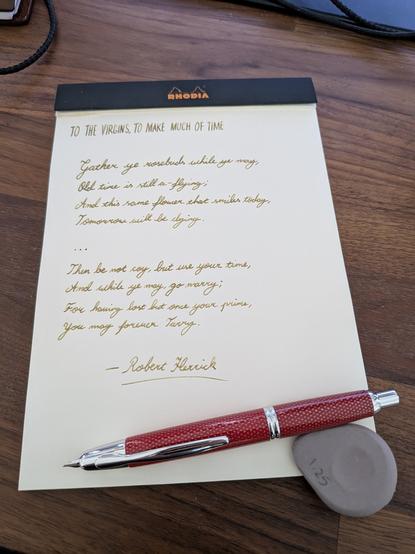 RHODIA
TO THE VIRGINS, TO MAKE MUCH OF TIME
Gather ye rosebuds while ye may,
Old time is still a-flying;
And this same flower that smiles today,
Tomorrow will be dying.
...
Then be not coy, but use your time,
And while ye may, go marry;
For having lost but once your prime,
You may forever Tarry.
— Robert Herrick
1.25